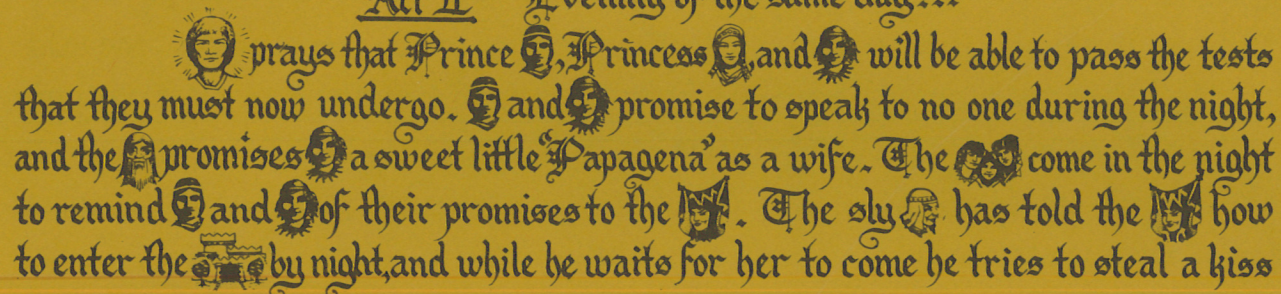 Act II Evening of the same day...
prays that Prince , Princess , and will be able to pass the tests
that they must now undergo. and promise to speak to no one during the night,
and the promises a sweet little "Papagena" as a wife. The come in the night
to remind and of their promises to the . The sly has told the how
to enter the by night, and while he waits for her to come he tries to steal a kiss